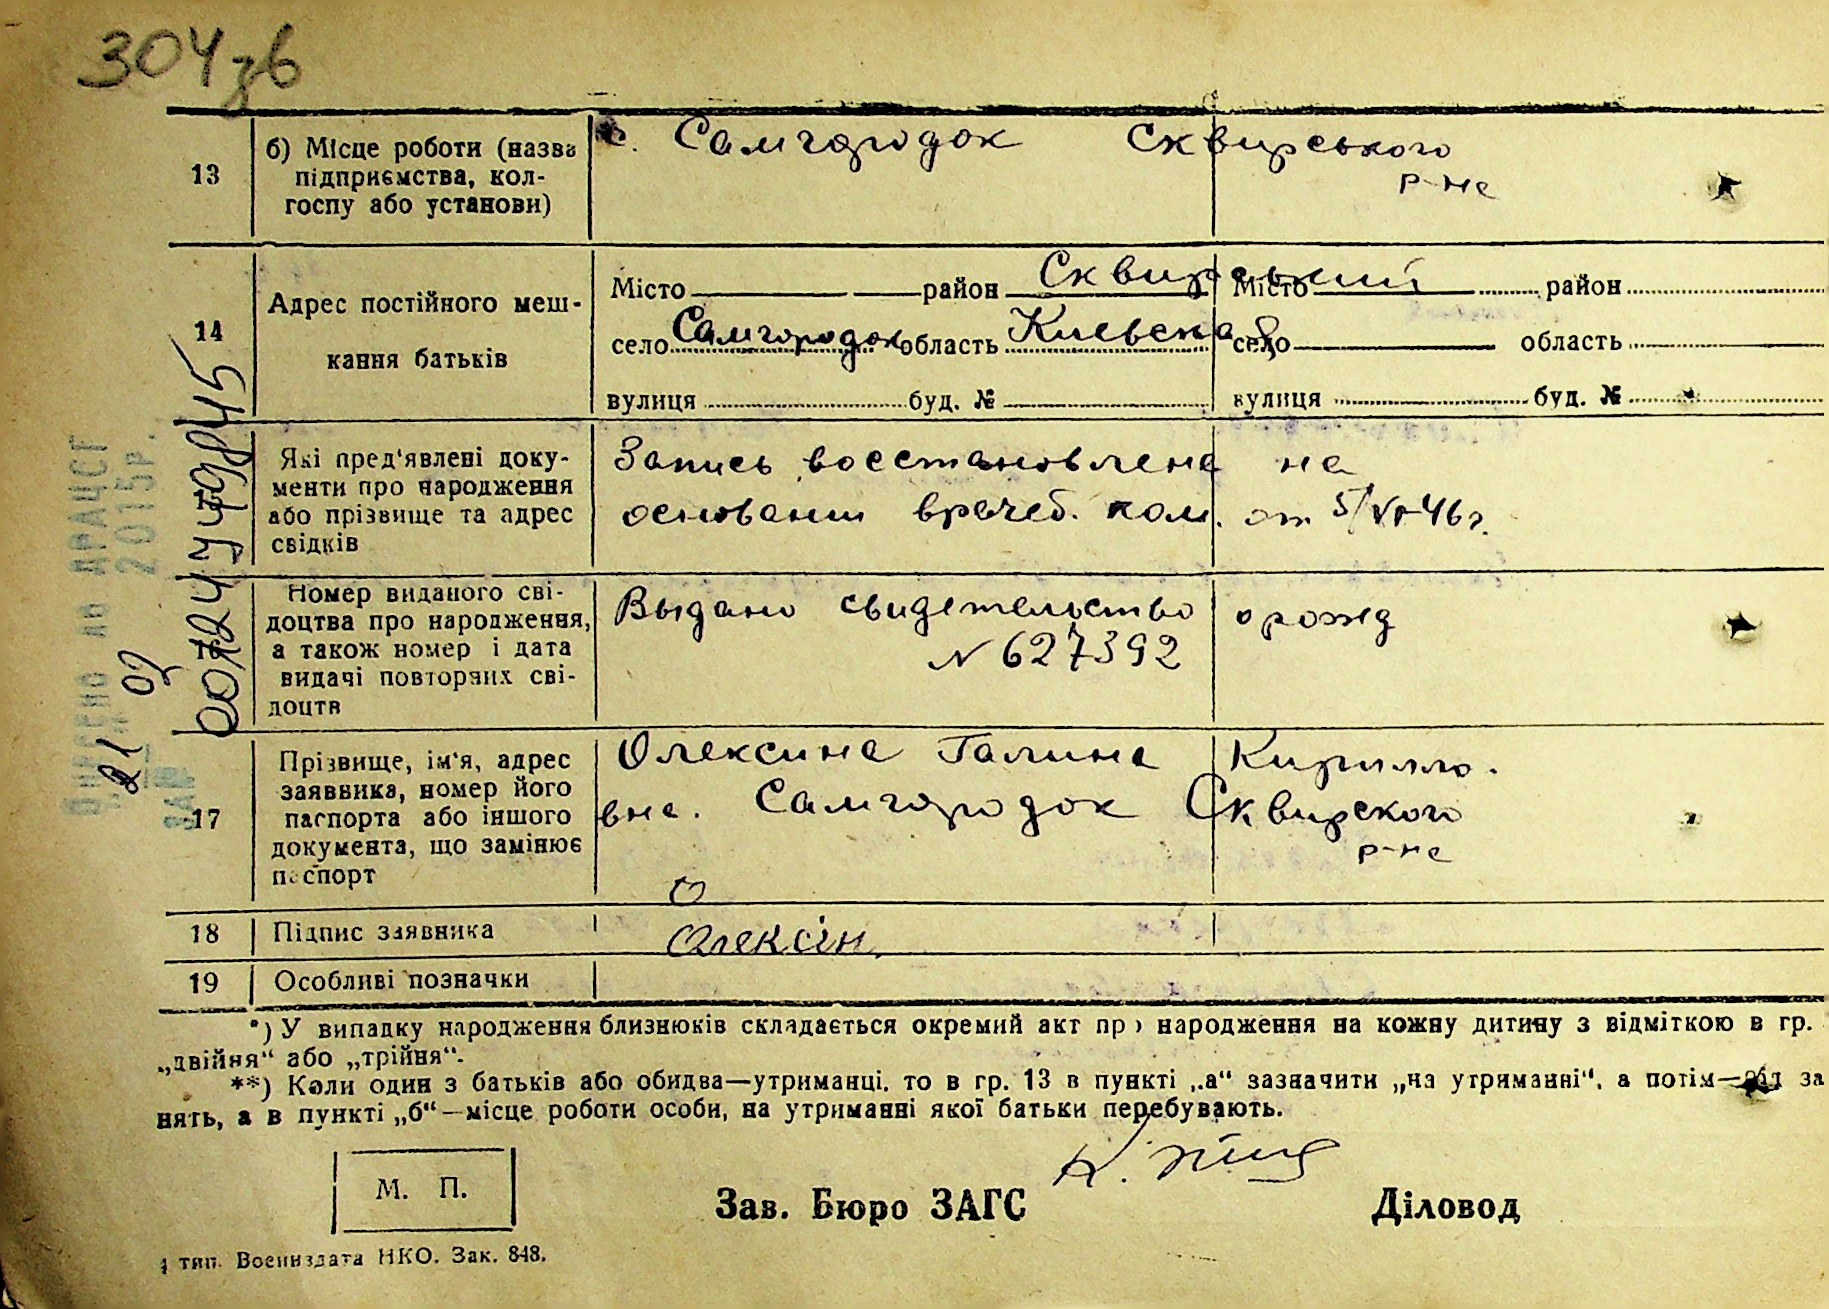 304 зв
13
б) Місце роботи (назва підприємства, кол-
госпу або установи)
с. Самгородок Сквирського
р-на
14
Адрес постійного меш-
кання батьків
Місто район Сквирський
село Самгородок область Киевская
вулиця буд. №
Місто район
село область
вулиця буд. №
Які пред'явлені доку-
менти про народження
або прізвище та адрес
свідків
Запись восстановлена на
основании врачеб. ком. от 5/VI-46г.
Номер виданого сві-
доцтва про народження,
а також номер і дата
видачі повторних сві-
доцтв
Выдано свидетельство о рожд
N 627392
17
Прізвище, ім'я, адрес
заявника, номер його
паспорта або іншого
документа, що замінює
паспорт
Олексина Галина Кирилло-
вна. Самгородок Сквирского
р-на
18
Підпис заявника
Олексін
19
Особливі позначки
*) У випадку народження близнюків складається окремий акт про народження на кожну дитину з відміткою в гр.
„двійня“ або „трійня“.
**) Коли один з батьків або обидва—утриманці, то в гр. 13 в пункті „а“ зазначити „на утриманні“, а потім—рід за
нять, а в пункті „б“—місце роботи особи, на утриманні якої батьки перебувають.
М. П.
Зав. Бюро ЗАГС
Діловод
тип. Воениздата НКО. Зак. 848.
до ДРАЦСГ
2015р.
21 02